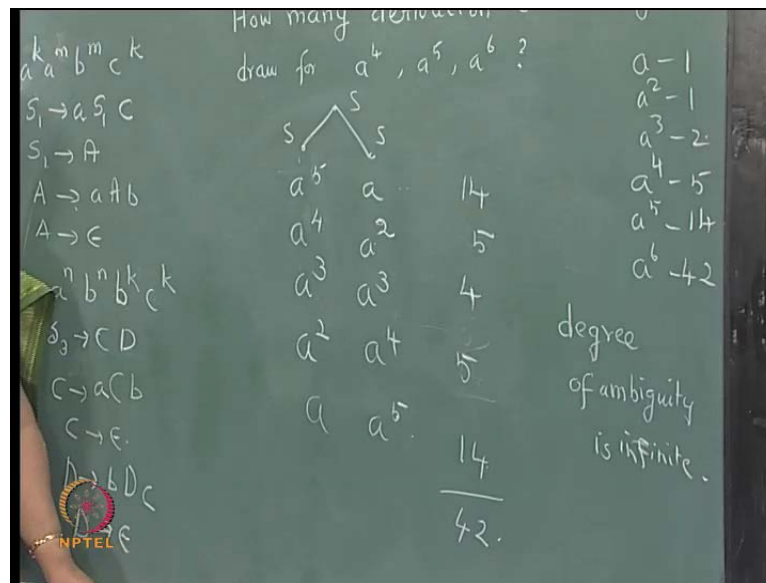 a^k a^m b^m c^k
S₁ → a S₁ C
S₁ → A
A → aAb
A → ϵ
a^n b^n b^k c^k
S₃ → CD
C → aCb
C → ϵ.
D → bDc
→ ϵ
NPTEL
How many derivation
draw for a^4, a^5, a^6 ?
S
S S
a^5 a 14
a^4 a^2 5
a^3 a^3 4
a^2 a^4 5
a a^5. 14
42.
a - 1
a^2 - 1
a^3 - 2
a^4 - 5
a^5 - 14
a^6 - 42
degree
of ambiguity
is infinite.